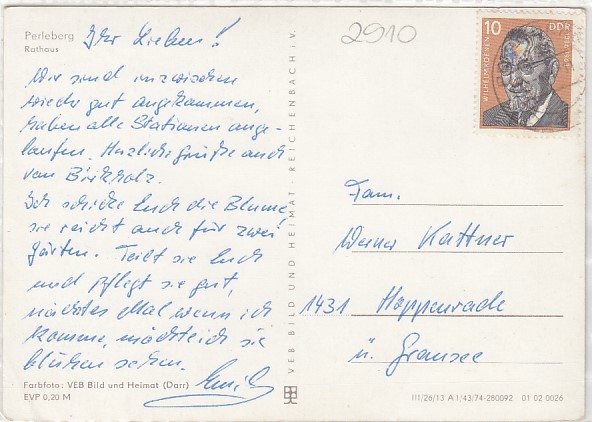 Perleberg
Rathaus
Ihr Lieben!
Wir sind inzwischen
wieder gut angekommen,
haben alle Stationen ange-
laufen. Herzliche Grüße auch
von Birkholz.
Ich schicke Euch die Blume,
sie reicht auch für zwei
Gärten. Teilt sie Euch
und pflegt sie gut,
nächstes Mal wenn ich
komme, möchte ich sie
blühen sehen.
Farbfoto: VEB Bild und Heimat (Darr)
EVP 0,20 M
VEB BILD UND HEIMAT · REICHENBACH i. V.
2910
10
DDR
WILHELM KOENEN
Fam.
Werner Kattner
1431 Hoppenrade
ü. Gransee
III/26/13 A 1/43/74-280092 01 02 0026